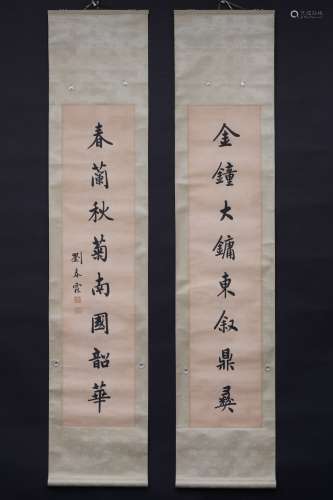 金鐘大鏞東叙鼎彝
春蘭秋菊南國韶華
劉春霖